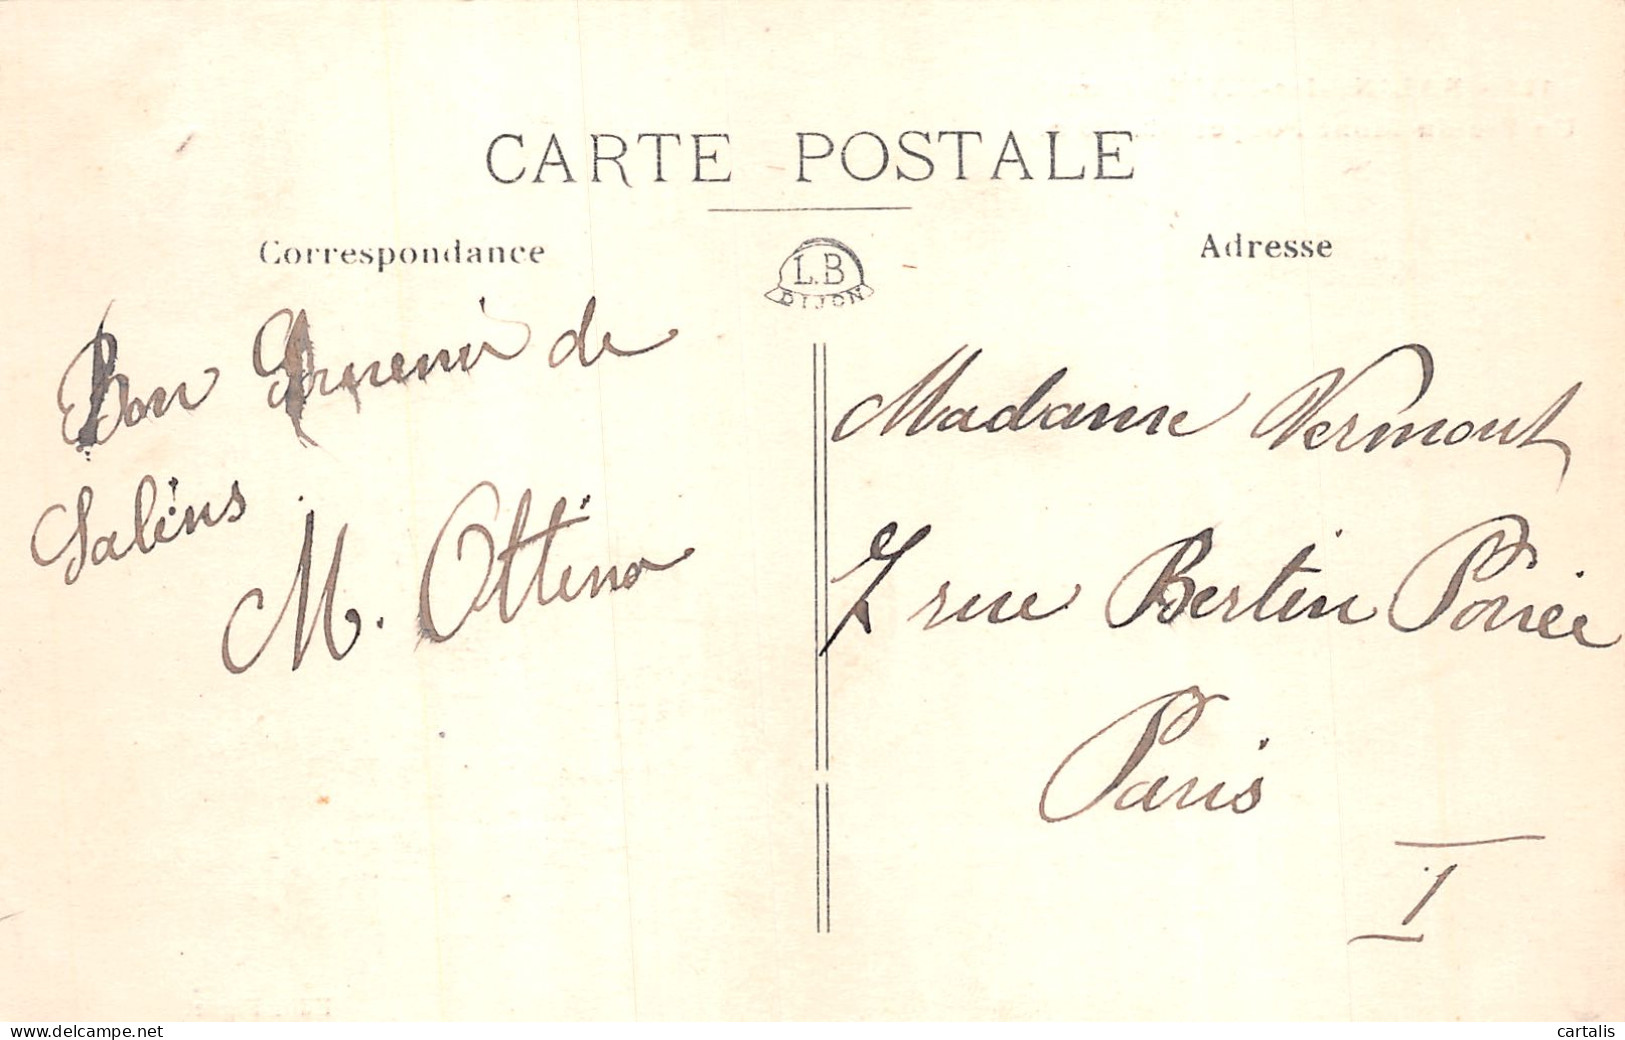 CARTE POSTALE
Correspondance
L.B
DIJON
Adresse
Bon Souvenir de
Salins
M. Ottina
Madame Vermout
7 rue Bertin Poirée
Paris
I
www.delcampe.net
cartalis